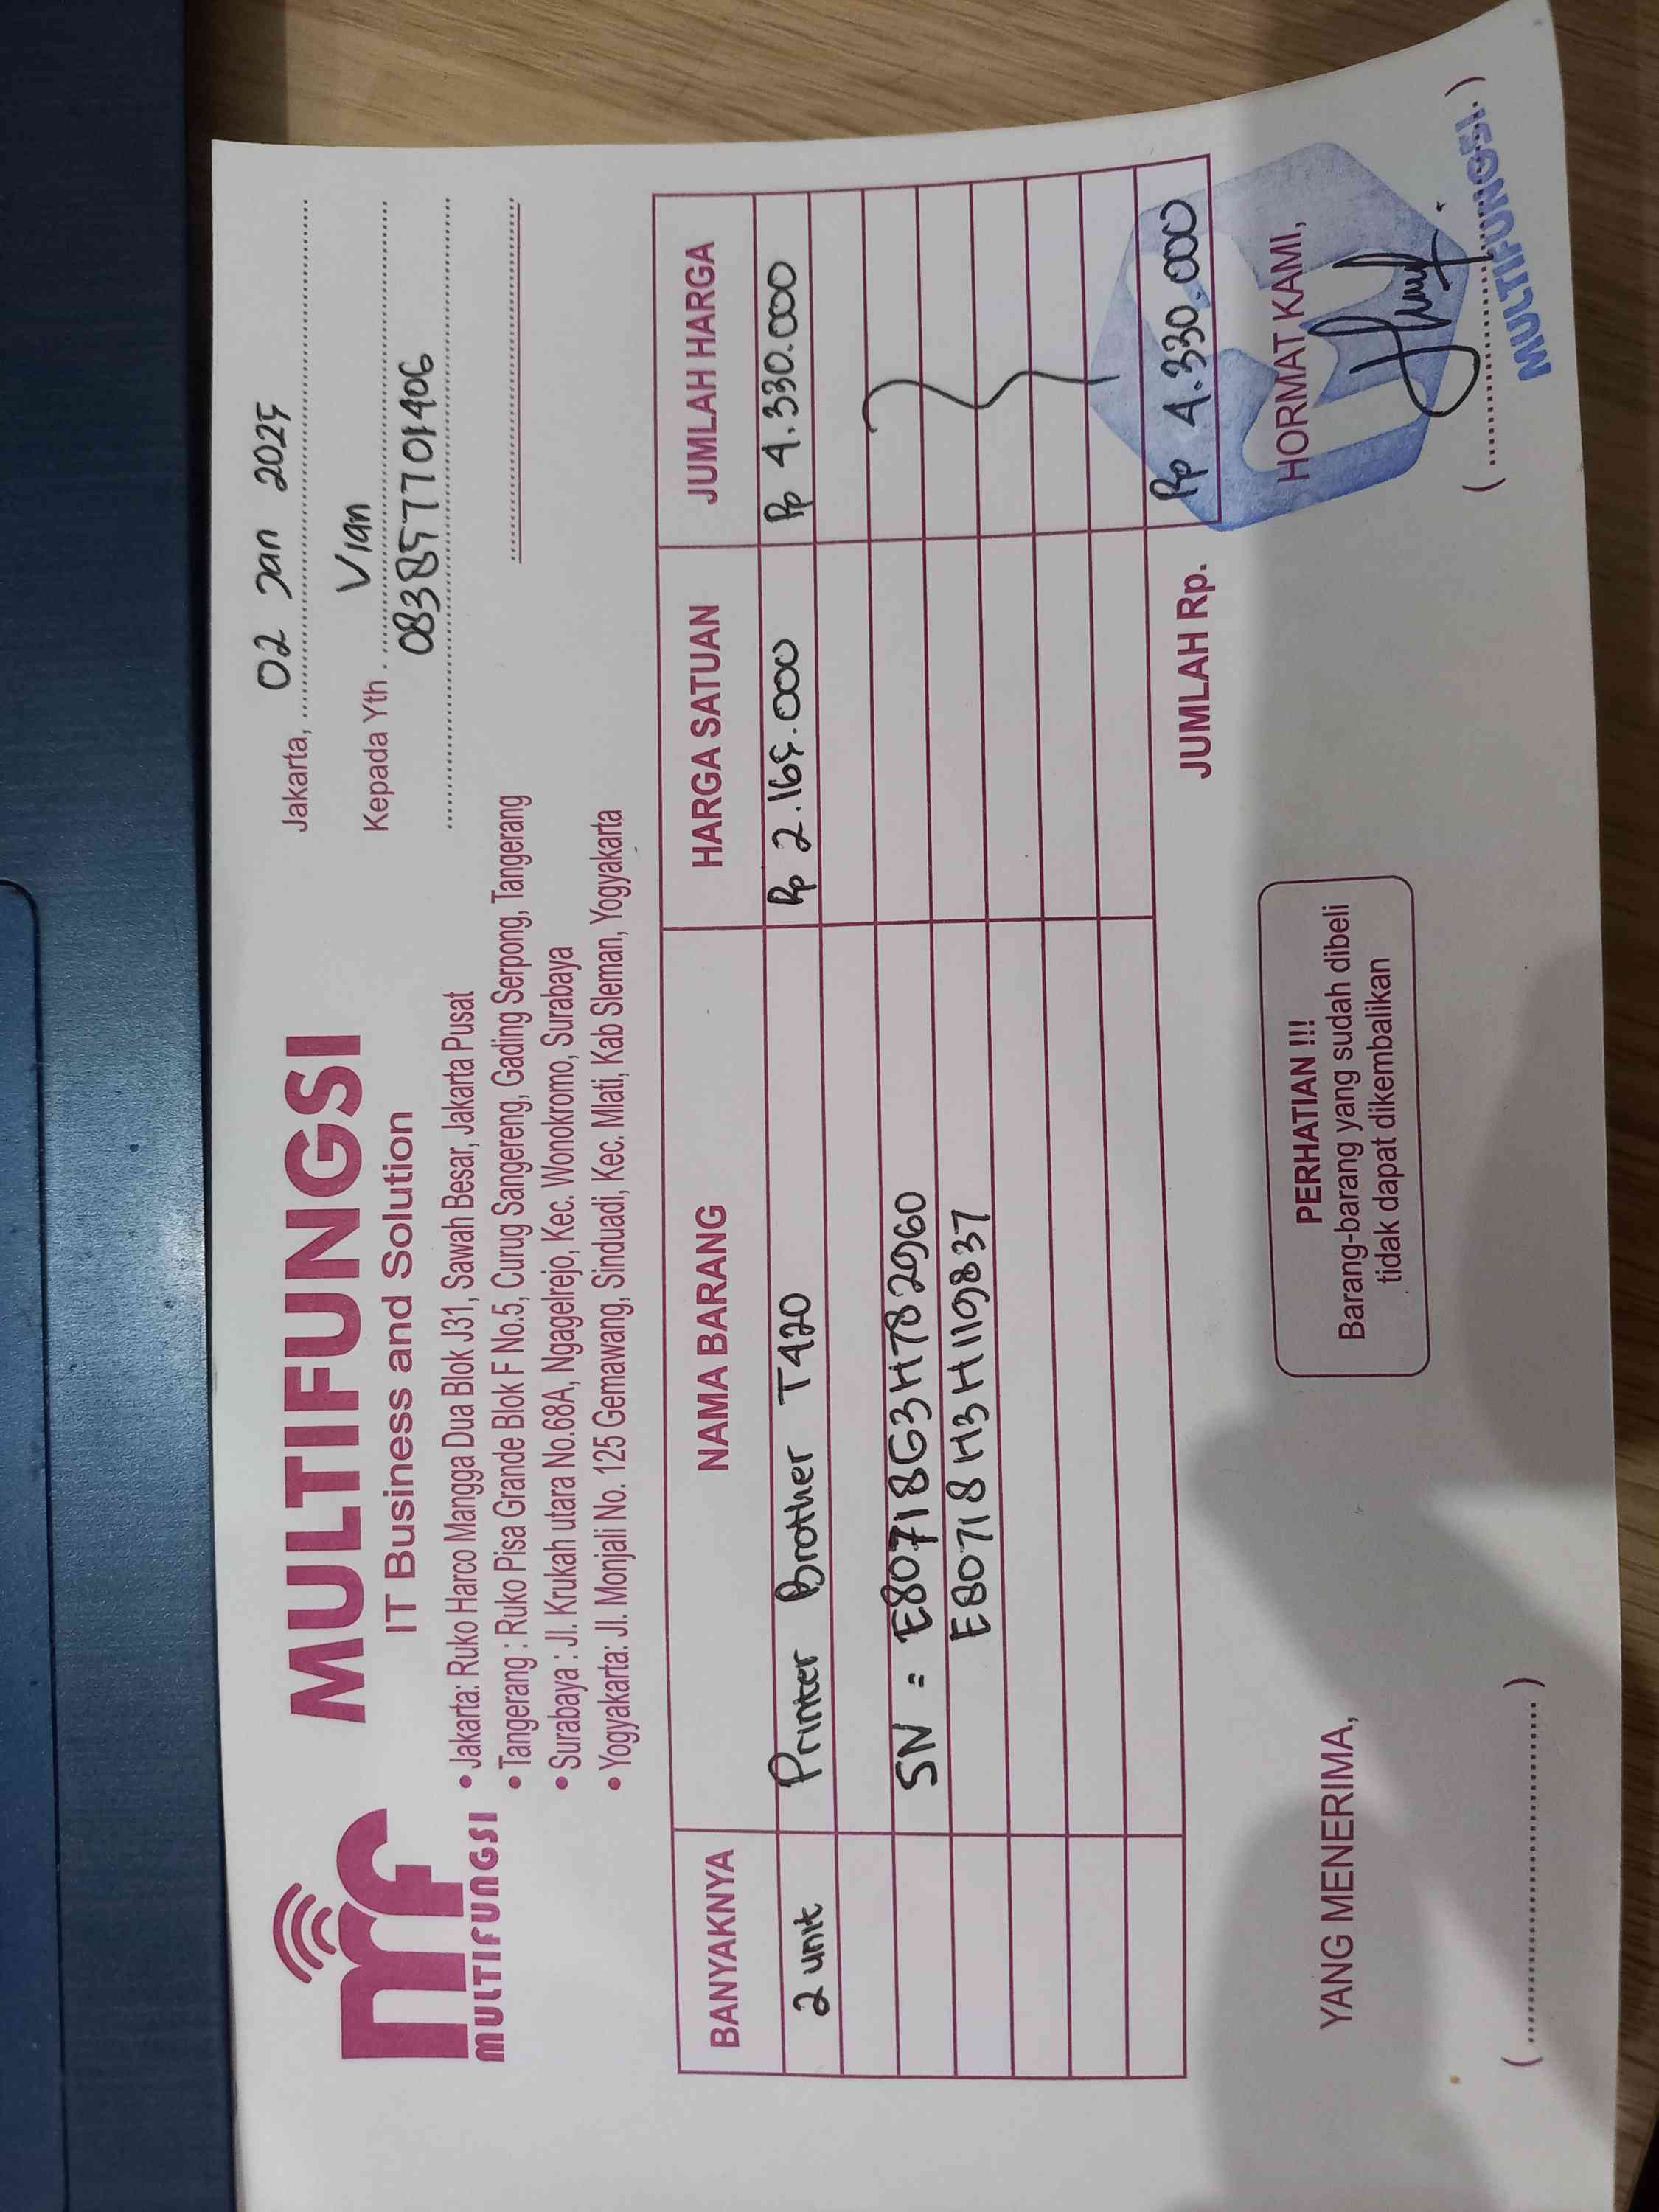 MULTIFUNGSI
IT Business and Solution
MULTIFUNGSI
• Jakarta: Ruko Harco Mangga Dua Blok J31, Sawah Besar, Jakarta Pusat
• Tangerang : Ruko Pisa Grande Blok F No.5, Curug Sangereng, Gading Serpong, Tangerang
• Surabaya : Jl. Krukah utara No.68A, Ngagelrejo, Kec. Wonokromo, Surabaya
• Yogyakarta: Jl. Monjali No. 125 Gemawang, Sinduadi, Kec. Mlati, Kab Sleman, Yogyakarta
Jakarta, 02 Jan 2025
Kepada Yth. Vian
083857701406
BANYAKNYA NAMA BARANG HARGA SATUAN JUMLAH HARGA
2 unit Printer Brother T420 Rp 2.165.000 Rp 4.330.000
SN = E80718G3H782960
E80718H3H119837
JUMLAH Rp. Rp 4.330.000
YANG MENERIMA,
PERHATIAN !!!
Barang-barang yang sudah dibeli
tidak dapat dikembalikan
HORMAT KAMI,
MULTIFUNGSI.